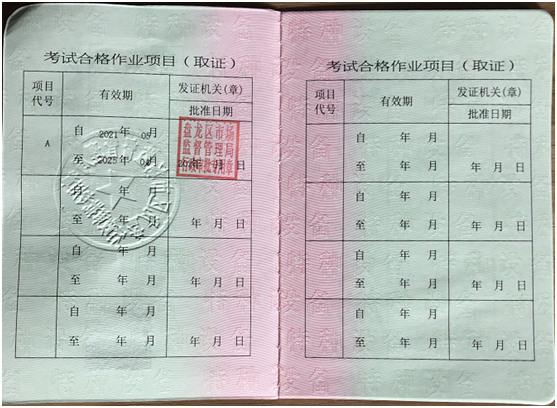 考试合格作业项目（取证）
项目代号 有效期 发证机关(章)
批准日期
A 自 2021年 05月
至 2025年 04月 年 月 日
盘龙区市场
监督管理局
自 年 月
至 年 月 年 月 日
自 年 月
至 年 月 年 月 日
自 年 月
至 年 月 年 月 日
考试合格作业项目（取证）
项目代号 有效期 发证机关(章)
批准日期
自 年 月
至 年 月 年 月 日
自 年 月
至 年 月 年 月 日
自 年 月
至 年 月 年 月 日
自 年 月
至 年 月 年 月 日